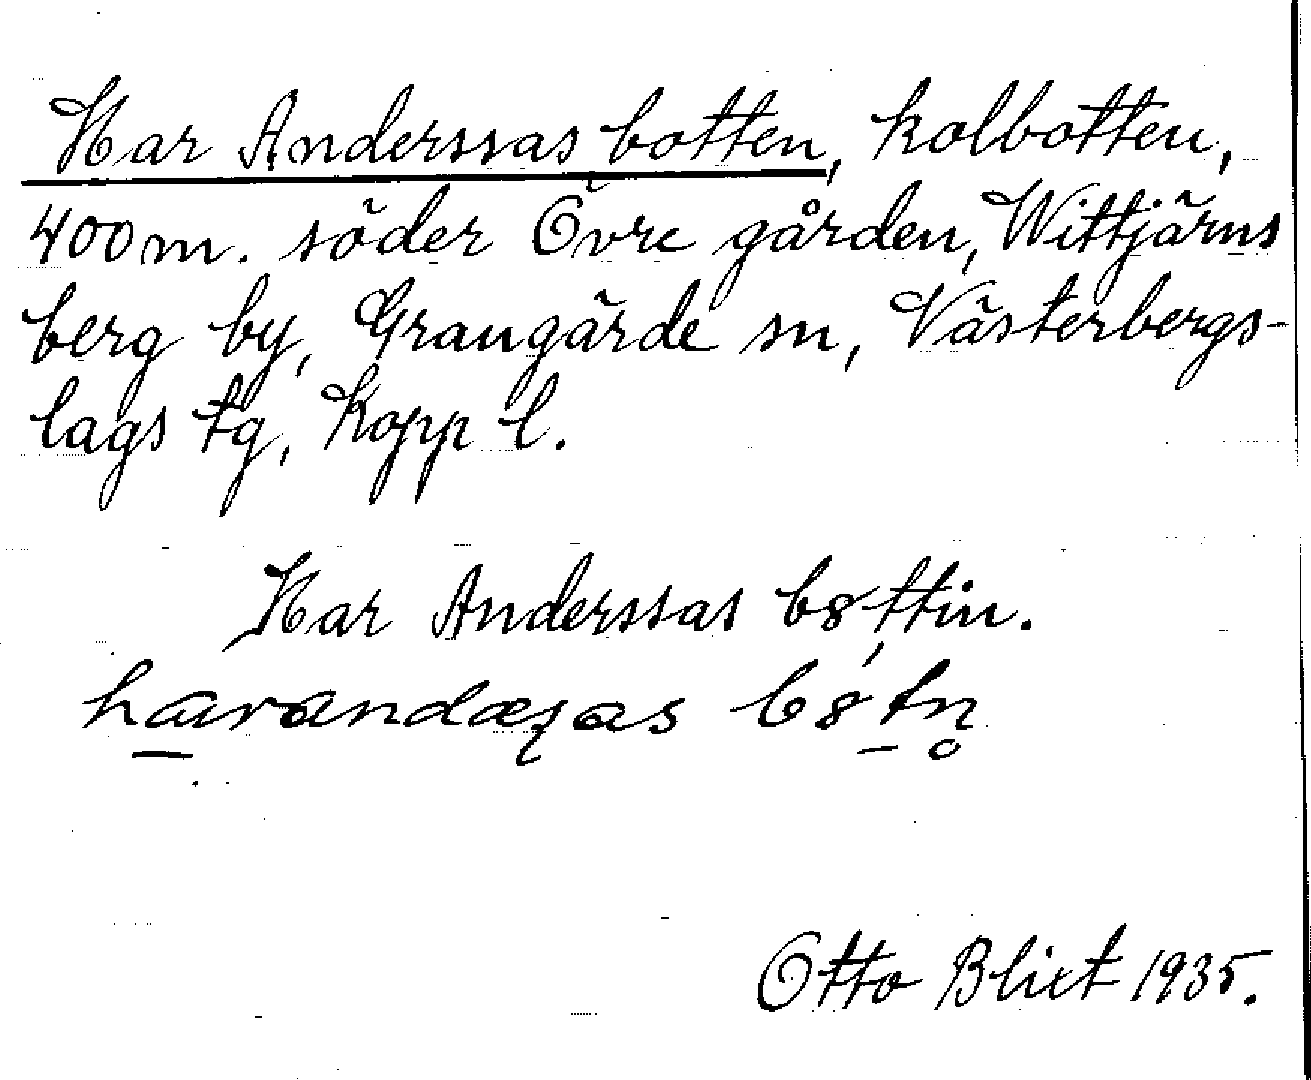 Har Anderssas botten, kolbotten,
400 m. söder Övre gården, Wittjärns
berg by, Grangärde sn, Västerbergs-
lags tg, Kopp l.
Har Anderssas b8ttin.
harandæṣas b8tn̥
Otto Blixt 1935.